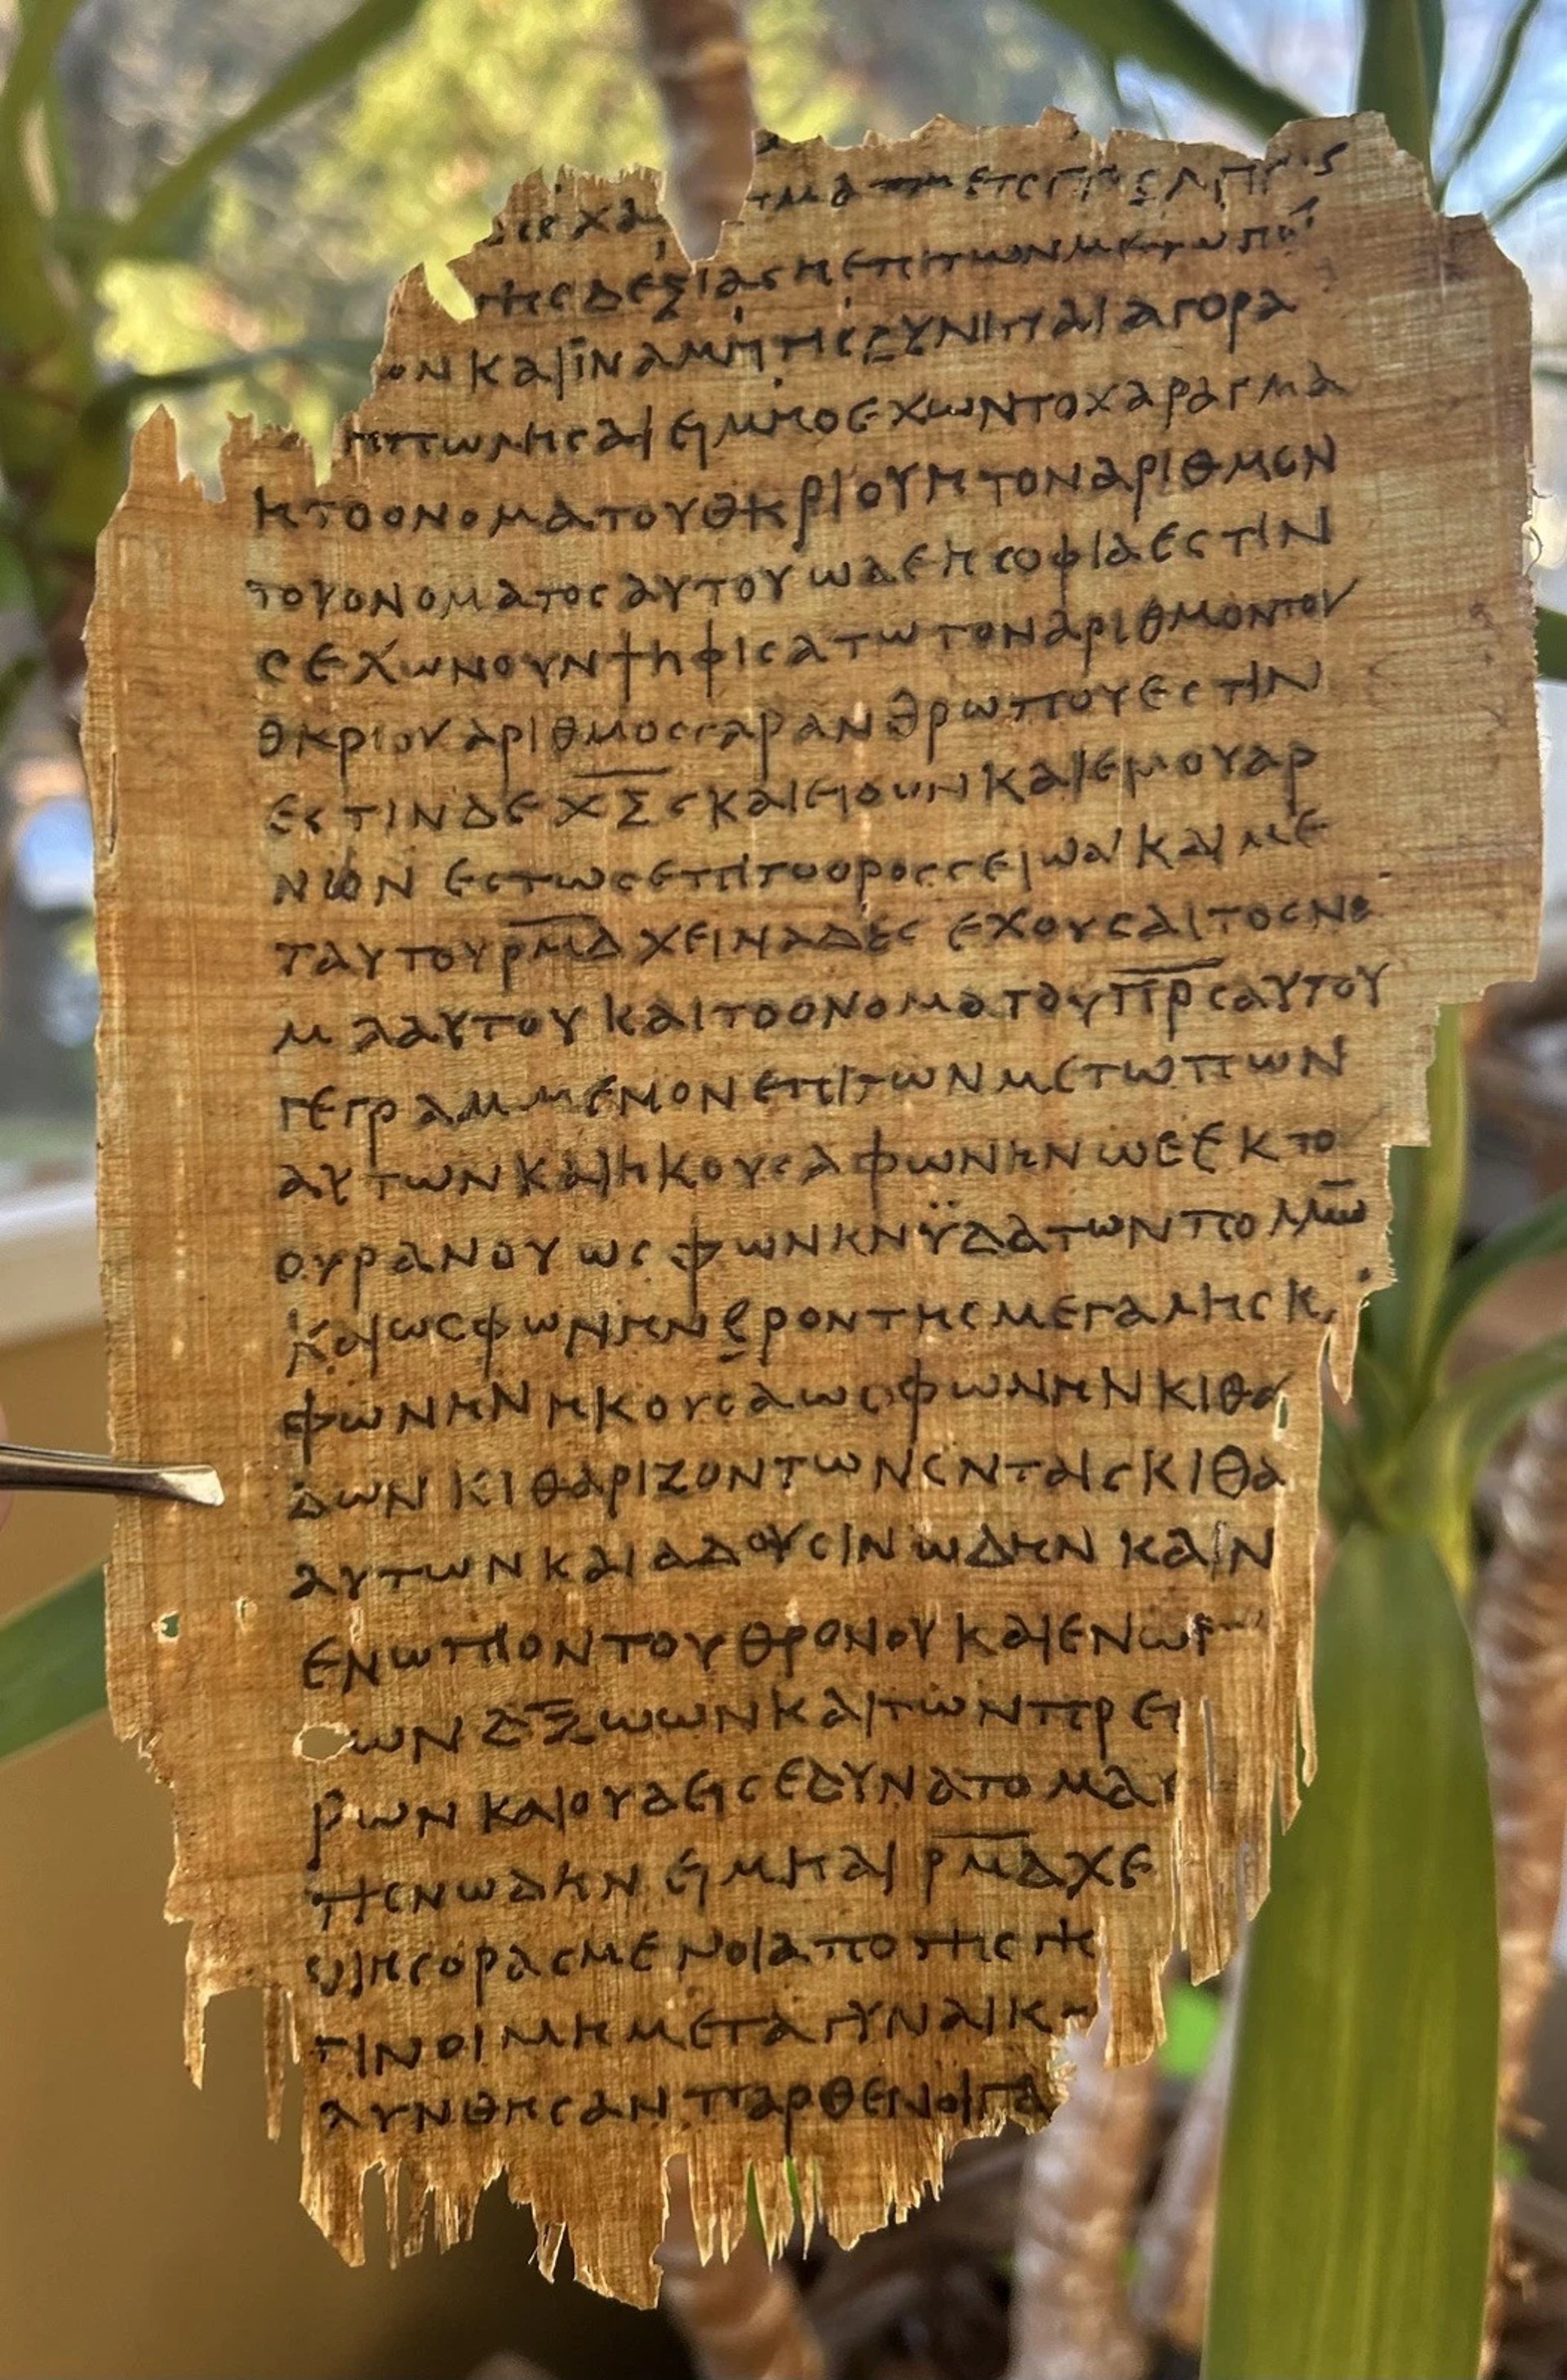 χα τμα
της δεξιας η επι των
ον και ϊνα μη τις δυνηται αγορα
πωλησαι ει μη ο εχων το χαραγμα
η το ονομα του θηριου η τον αριθμον
του ονοματος αυτου ωδε η σοφια εστιν
ς εχων ουν ψηφισατω τον αριθμον του
θηριου αριθμος γαρ ανθρωπου εστιν
εστιν δε χξς και ειδον και εμου αρ
νιον εστως επι το ορος σειων και με
τ αυτου ρ̅μ̅δ̅ χειλιαδες εχουσαι το ονο
μα αυτου και το ονομα του π̅ρ̅ς̅ αυτου
γεγραμμενον επι των μετωπων
αυτων και ηκουσα φωνην ως εκ το
ουρανου ως φωνην ϋδατων πολλω̅
και ως φωνην βροντης μεγαλης κ
φωνην ηκουσα ως φωνην κιθα
δων κιθαριζοντων εν ταις κιθα
αυτων και αδουσιν ωδην και
ενωπιον του θρονου και ενωπ
ων δ̅ ζωων και των πρε
ρων και ουδεις εδυνατο μα
την ωδην ει μη αι ρ̅μ̅δ̅ χε
ηγορασμενοι απο της γης
τινοι μη μετα γυναικ
λυνθησαν παρθενοι γα